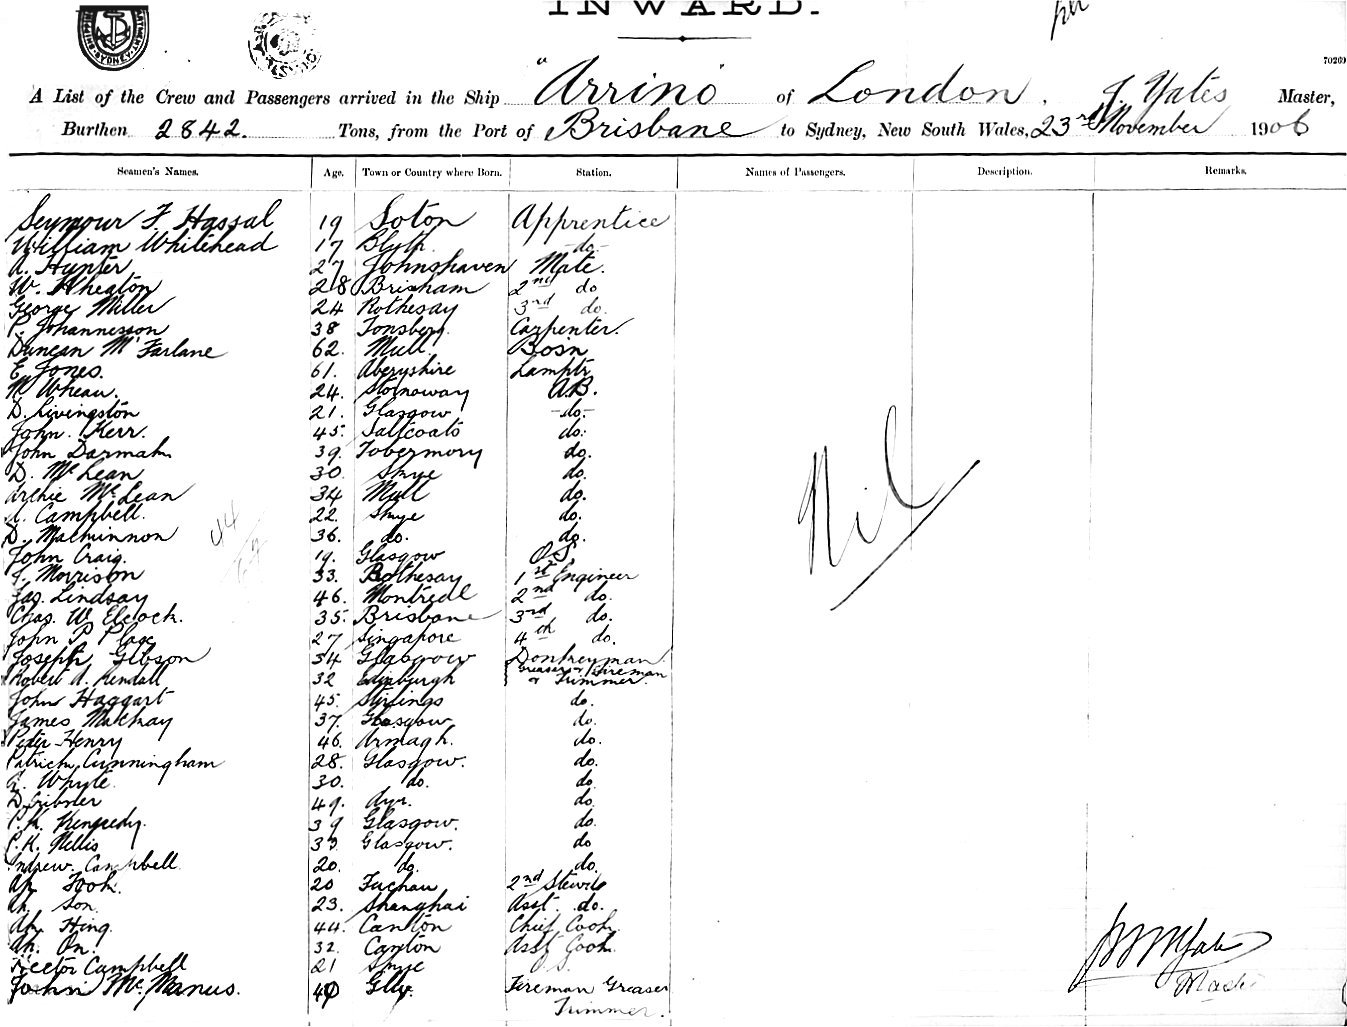 INWARD.
per
70269
A List of the Crew and Passengers arrived in the Ship "Arrino" of London. J. Yates Master,
Burthen 2842. Tons, from the Port of Brisbane to Sydney, New South Wales, 23rd November 1906
Seamen's Names. Age. Town or Country where Born. Station. Names of Passengers. Description. Remarks.
Seymour F. Hassal 19 Soton Apprentice
William Whitehead 17 Blyth. -do-
A. Hunter 27 Johnshaven Mate.
W. Wheaton 28 Brixham 2nd do
George Miller 24 Rothesay 3rd do.
P. Johannesson 38 Tonsberg. Carpenter.
Duncan McFarlane 62. Mull. Bosn
E. Jones. 61. Aberyshire Lamptr
24. Stornoway A.B.
D. Livingston 21. Glasgow -do.-
John. Kerr. 45. Saltcoats do.
John 39. Tobermory do.
D. McLean 30. Skye do.
Archie McLean 34 Mull do.
A. Campbell. 22. Skye do.
D. Mackinnon 36. do. do.
John Craig. 19. Glasgow O.S.
J. Morrison 33. Rothesay 1st Engineer
Jas. Lindsay 46. Montreal 2nd do.
Chas. W. Elcock. 35. Brisbane 3rd do.
John P. 27 Singapore 4th do.
Joseph Gibson 54 Glasgow Donkeyman.
Robert A. Kendall 32 Edinburgh Greaser or Fireman
or Trimmer.
John Haggart 45. Stirlings do.
James Mackay 37. Glasgow do.
Peter Henry 46. Armagh. do.
Patrick Cunningham 28. Glasgow. do.
Whyte 30. do. do.
D. Scribner 49. Ayr. do.
P. K. Kennedy. 39 Glasgow. do.
P. K. Nellis 33. Glasgow. do
Andrew. Campbell 20. do. do.
Ah Fook. 20 Fuchau 2nd Stewd
Ah Son. 23. Shanghai Asst. do.
Ah Hing 44. Canton Chief Cook
Ah. On. 32. Canton Asst Cook
Hector Campbell 21 Skye O.S.
John McManus. 40 Glw. Fireman Greaser
Trimmer.
Nil
Yates
Master